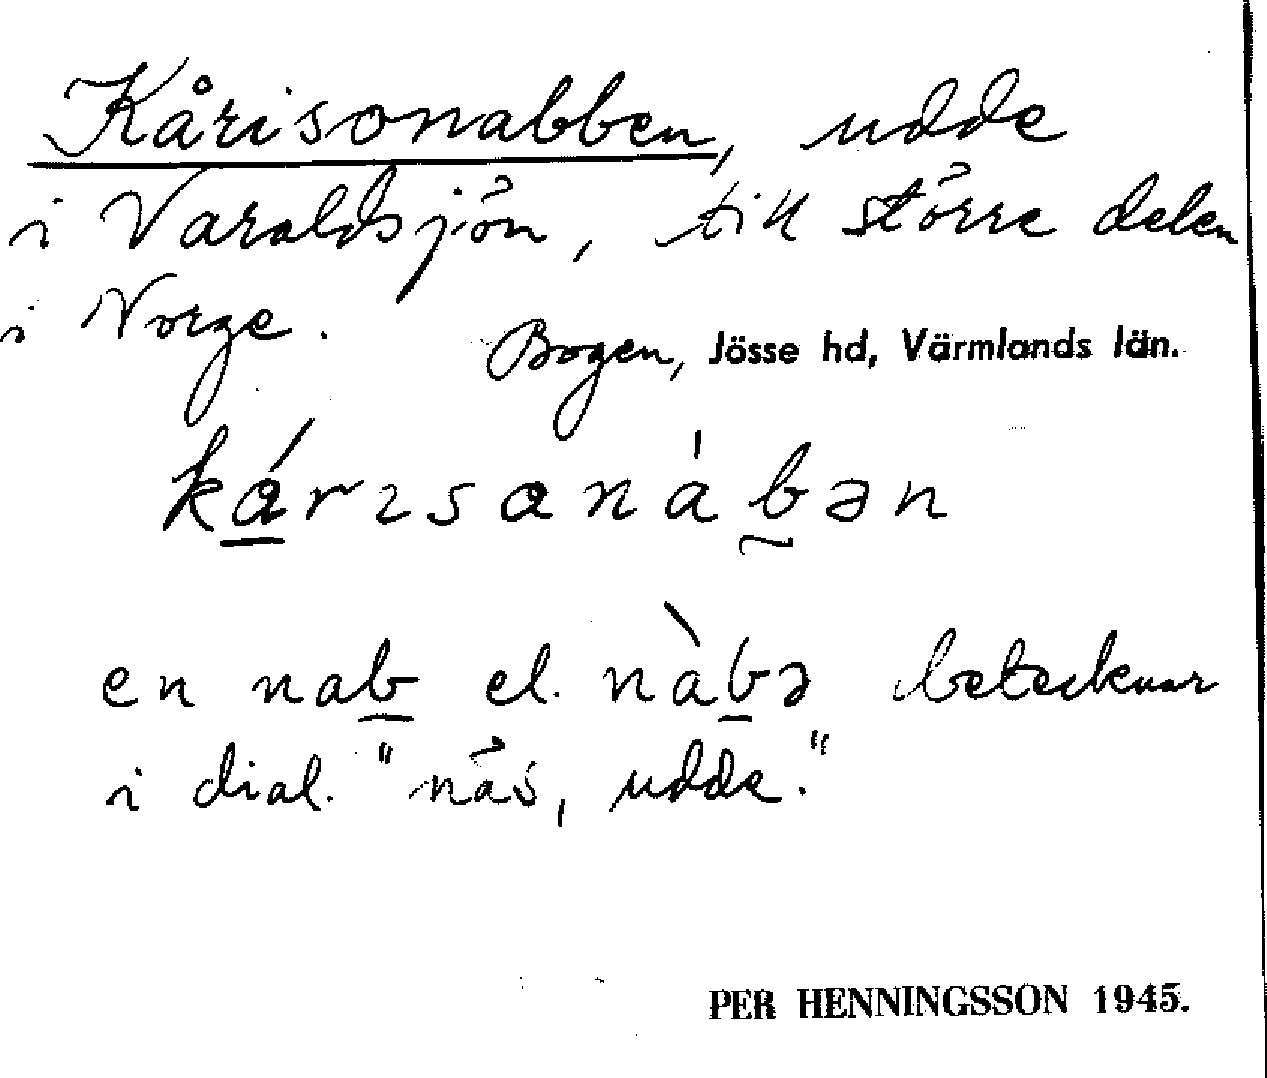 Kårisonabben, udde
i Varaldsjön, till större delen
i Norge.
Bogen, Jösse hd, Värmlands län.
kárısanàbən
en nab el. nàbə betecknar
i dial. "näs, udde."
PER HENNINGSSON 1945.